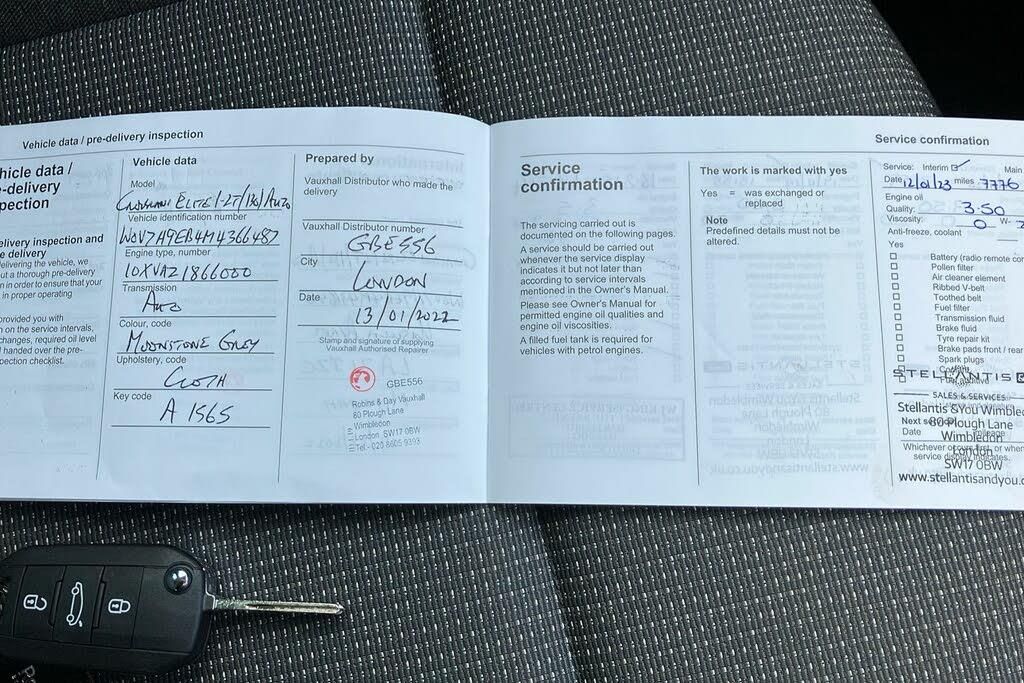 Vehicle data / pre-delivery inspection
ehicle data /
e-delivery
spection
delivery inspection and
e delivery
delivering the vehicle, we
out a thorough pre-delivery
n in order to ensure that your
in proper operating
provided you with
on on the service intervals,
changes, required oil level
handed over the pre-
spection checklist.
Vehicle data
Model
Crossland Elite 1.2T/130/Auto
Vehicle identification number
W0V7H9EB4M4366487
Engine type, number
10XVAZ1866000
Transmission
Auto
Colour, code
Moonstone Grey
Upholstery, code
Cloth
Key code
A 1565
Prepared by
Vauxhall Distributor who made the
delivery
Vauxhall Distributor number
GBE556
City
London
Date
13/01/2022
Stamp and signature of supplying
Vauxhall Authorised Repairer
GBE556
Robins & Day Vauxhall
80 Plough Lane
Wimbledon
London SW17 0BW
Tel - 020 8605 9393
Service confirmation
Service
confirmation
The servicing carried out is
documented on the following pages.
A service should be carried out
whenever the service display
indicates it but not later than
according to service intervals
mentioned in the Owner's Manual.
Please see Owner's Manual for
permitted engine oil qualities and
engine oil viscosities.
A filled fuel tank is required for
vehicles with petrol engines.
The work is marked with yes
Yes = was exchanged or
replaced
Note
Predefined details must not be
altered.
Service: Interim Main
Date 12/01/23 miles 7776
Engine oil
Quality: 3.50
Viscosity: 0 W-
Anti-freeze, coolant
Yes
Battery (radio remote co
Pollen filter
Air cleaner element
Ribbed V-belt
Toothed belt
Fuel filter
Transmission fluid
Brake fluid
Tyre repair kit
Brake pads front / rear
Spark plugs
STELLANTIS
SALES & SERVICES
Stellantis &You Wimble
80 Plough Lane
Wimbledon
London
SW17 0BW
www.stellantisandyou.c
Date
mileage
Whichever occurs first, or when
service display indicates.